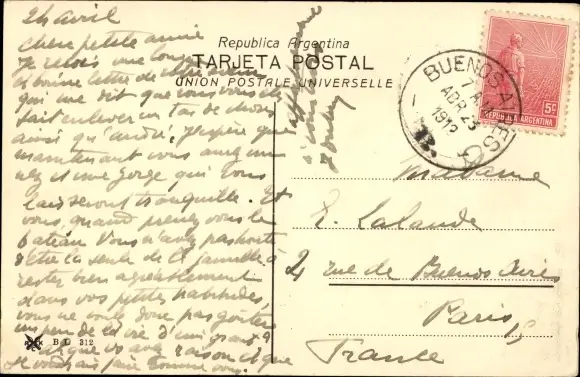 24 avril
Chère petite amie
Je reçois une longue
et bonne lettre de votre
qui me dit que vous vous êtes
fait enlever un tas de choses
ainsi qu'André. J'espère que
maintenant vous avez un
nez et une gorge qui vous
laisseront tranquille. Et
vous, quand prenez vous le
bateau. Vous n'avez pas honte
d'être la seule de la famille à
rester bien agréablement
dans vos petites habitudes,
vous ne voulez donc pas goûter
un peu de la vie d'émigrant ?
que vs avez raison et que
Je voudrais faire comme vous.
à vous
Republica Argentina
TARJETA POSTAL
UNION POSTALE UNIVERSELLE
BUENOS AIRES
ABR 23
1912
5c
REPUBLICA ARGENTINA
Madame
E. Lalande
2, rue de Buenos Aires
Paris
France
B D 312